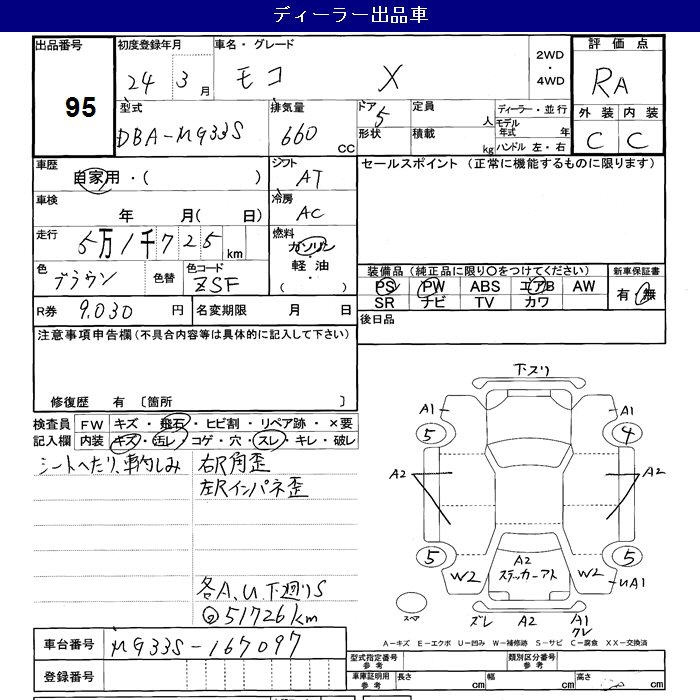 ディーラー出品車
出品番号 初度登録年月 車名・グレード 2WD ・ 4WD 評価点
95 24年3月 モコ X RA
外装 内装
C C
型式 排気量 ドア 定員 ディーラー・並行
DBA-MG33S 660 CC 5 人 モデル年式 年
形状 積載 kg ハンドル 左・右
車歴 自家用・( ) シフト AT セールスポイント (正常に機能するものに限ります)
車検 年 月( 日) 冷房 AC
走行 5万1千725km 燃料 ガソリン
軽・油
( )
色 ブラウン 色替 色コード ZSF
装備品 (純正品に限り○をつけてください) 新車保証書
PS PW ABS エアB AW 有・無
SR ナビ TV カワ
R券 9,030 円 名変期限 月 日
後日品
注意事項申告欄(不具合内容等は具体的に記入して下さい)
修復歴 有 〔箇所 〕
検査員 FW キズ・飛石・ヒビ割・リペア跡・×要
記入欄 内装 キズ・汚レ・コゲ・穴・スレ・キレ・破レ
シートへたり、車内しみ 右R角歪
左Rインパネ歪
各A、U、下廻りS
◎51726km
下スリ
A1 A1
5 4
A2 A2
5 5
W2 A2 W2
ステッカーアト UA1
スペア ズレ A2 A1
ワレ
A-キズ E-エクボ U-凹み W-補修跡 S-サビ C-腐食 XX-交換済
車台番号 MG33S-167097
型式指定番号 参考 類別区分番号 参考
登録番号 車庫証明用 参考 長さ cm 幅 cm 高さ cm